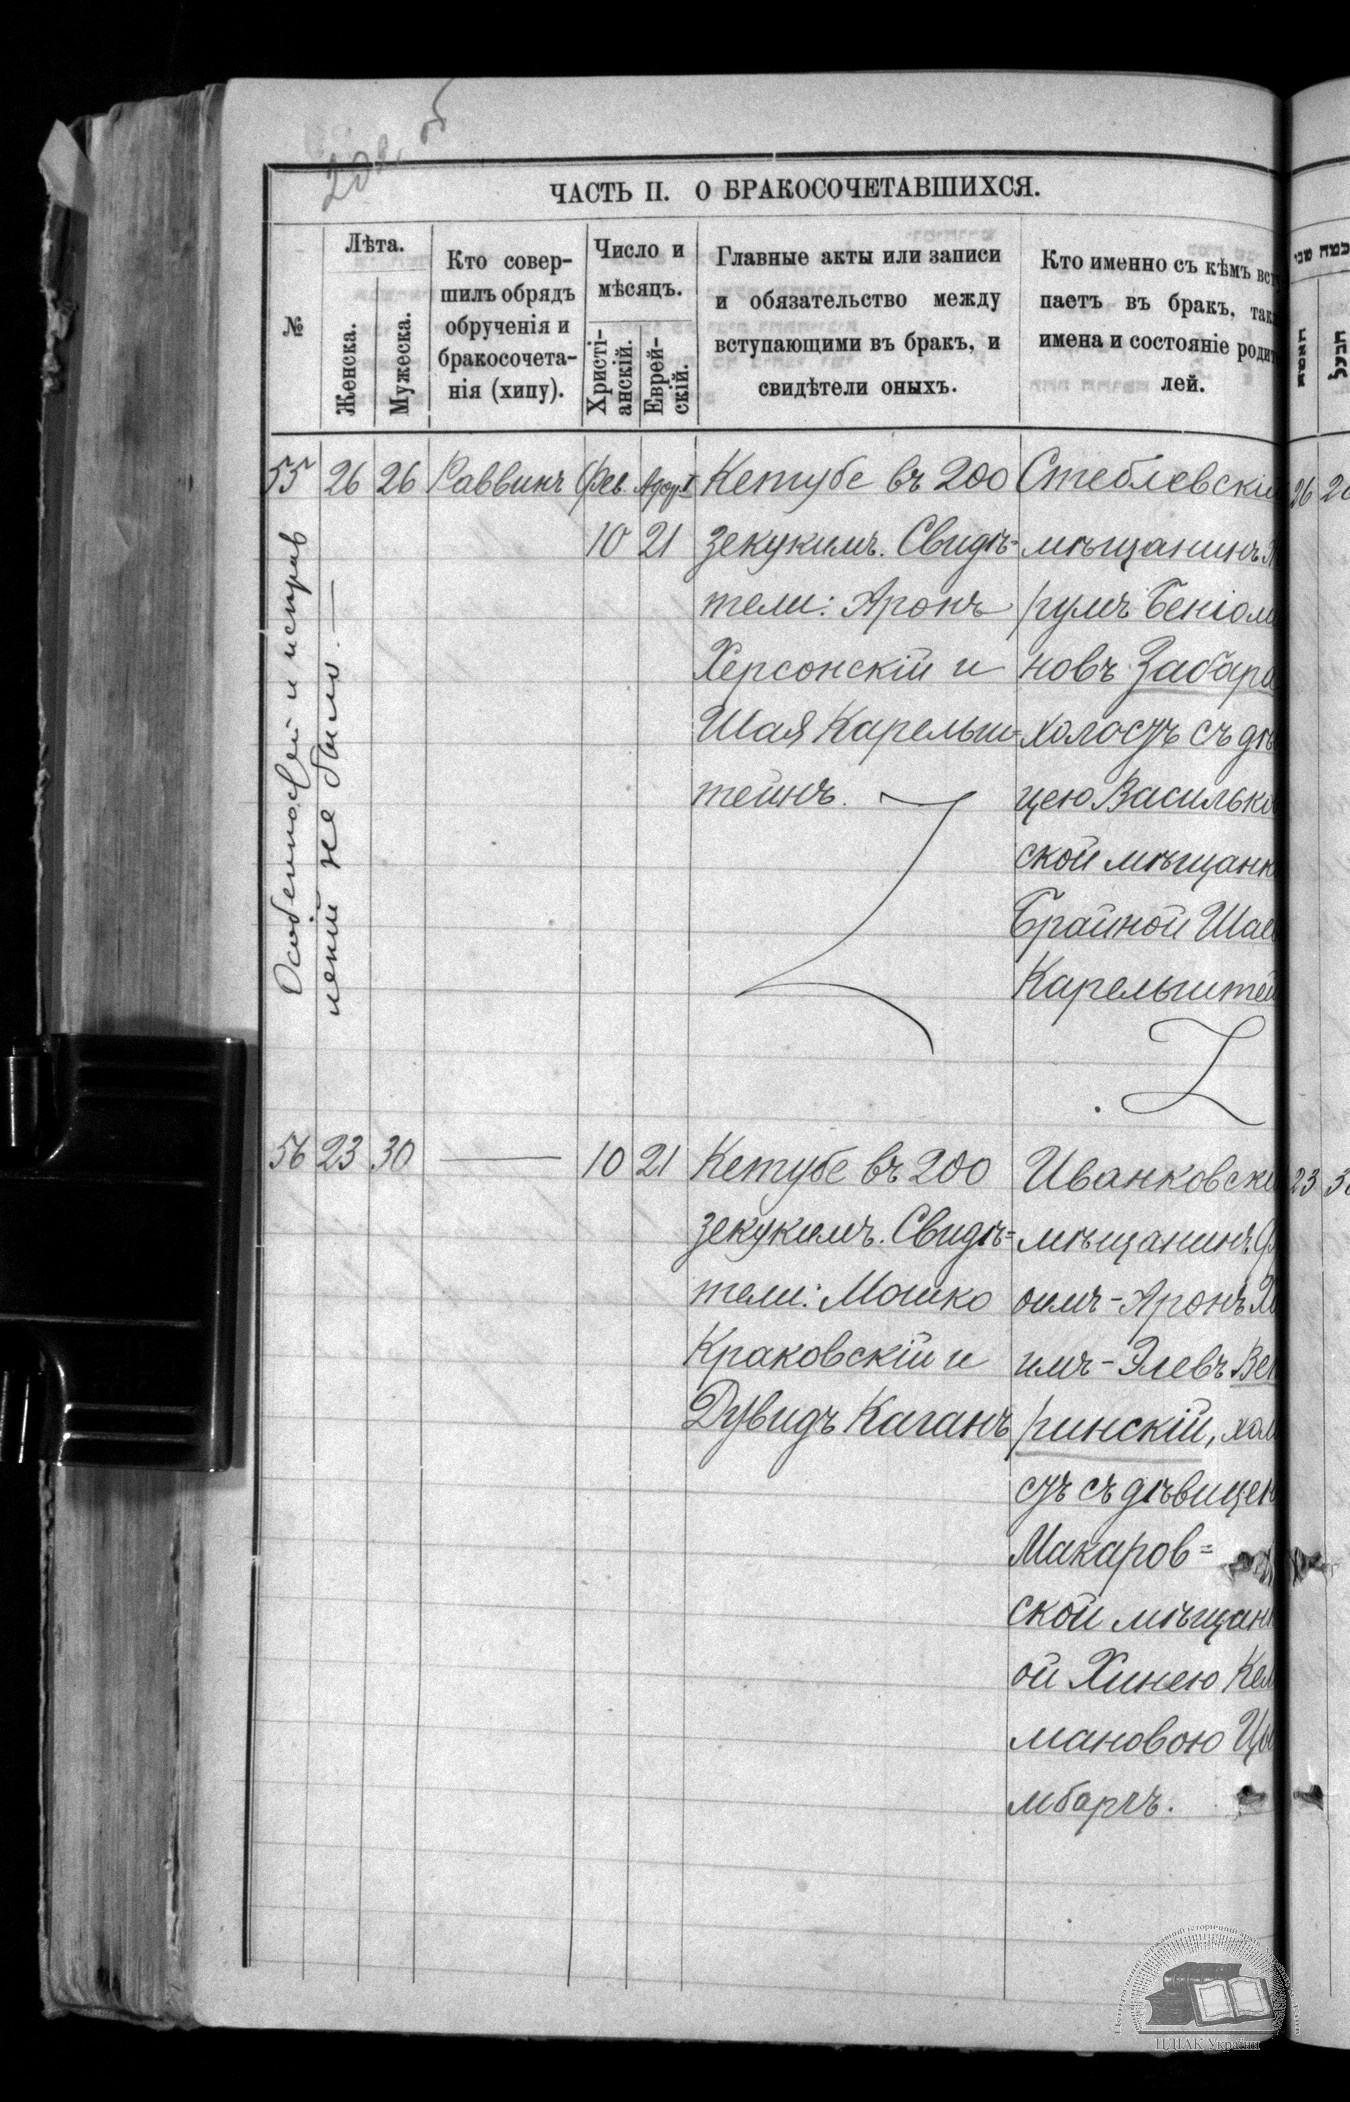 ЧАСТЬ II. О БРАКОСОЧЕТАВШИХСЯ.
№
Лѣта.
Женска.
Мужеска.
Кто совер-
шилъ обрядъ
обрученія и
бракосочета-
нія (хипу).
Число и
мѣсяцъ.
Христі-
анскій.
Еврей-
скій.
Главные акты или записи
и обязательство между
вступающими въ бракъ, и
свидѣтели оныхъ.
Кто именно съ кѣмъ всту
паетъ въ бракъ, так
имена и состояніе родит
лей.
55 26 26 Раввинъ Фев. Адаръ I
10 21
Кетубе въ 200
зекукимъ. Свидѣ-
тели: Аронъ
Херсонскій и
Шая Карельш-
тейнъ.
Стеблевскій
мѣщанинъ
румъ Беніоми
новъ Забара
холостъ съ дѣв
цею Васильков
ской мѣщанк
Брайной Шаев
Карельштей
Особенностей и исправ
леній не было. —
56 23 30 — 10 21
Кетубе въ 200
зекукимъ. Свидѣ=
тели: Мошко
Краковскій и
Дувидъ Каганъ
Иванковскі
мѣщанинъ
оимъ-Аронъ Ха
имъ-Элевъ Вен
ринскій, холо
стъ съ дѣвицею
Макаров=
ской мѣщанк
ой Хинею Кел
мановою Цы
мбаръ.
26 26
23 30
ЦДІАК України